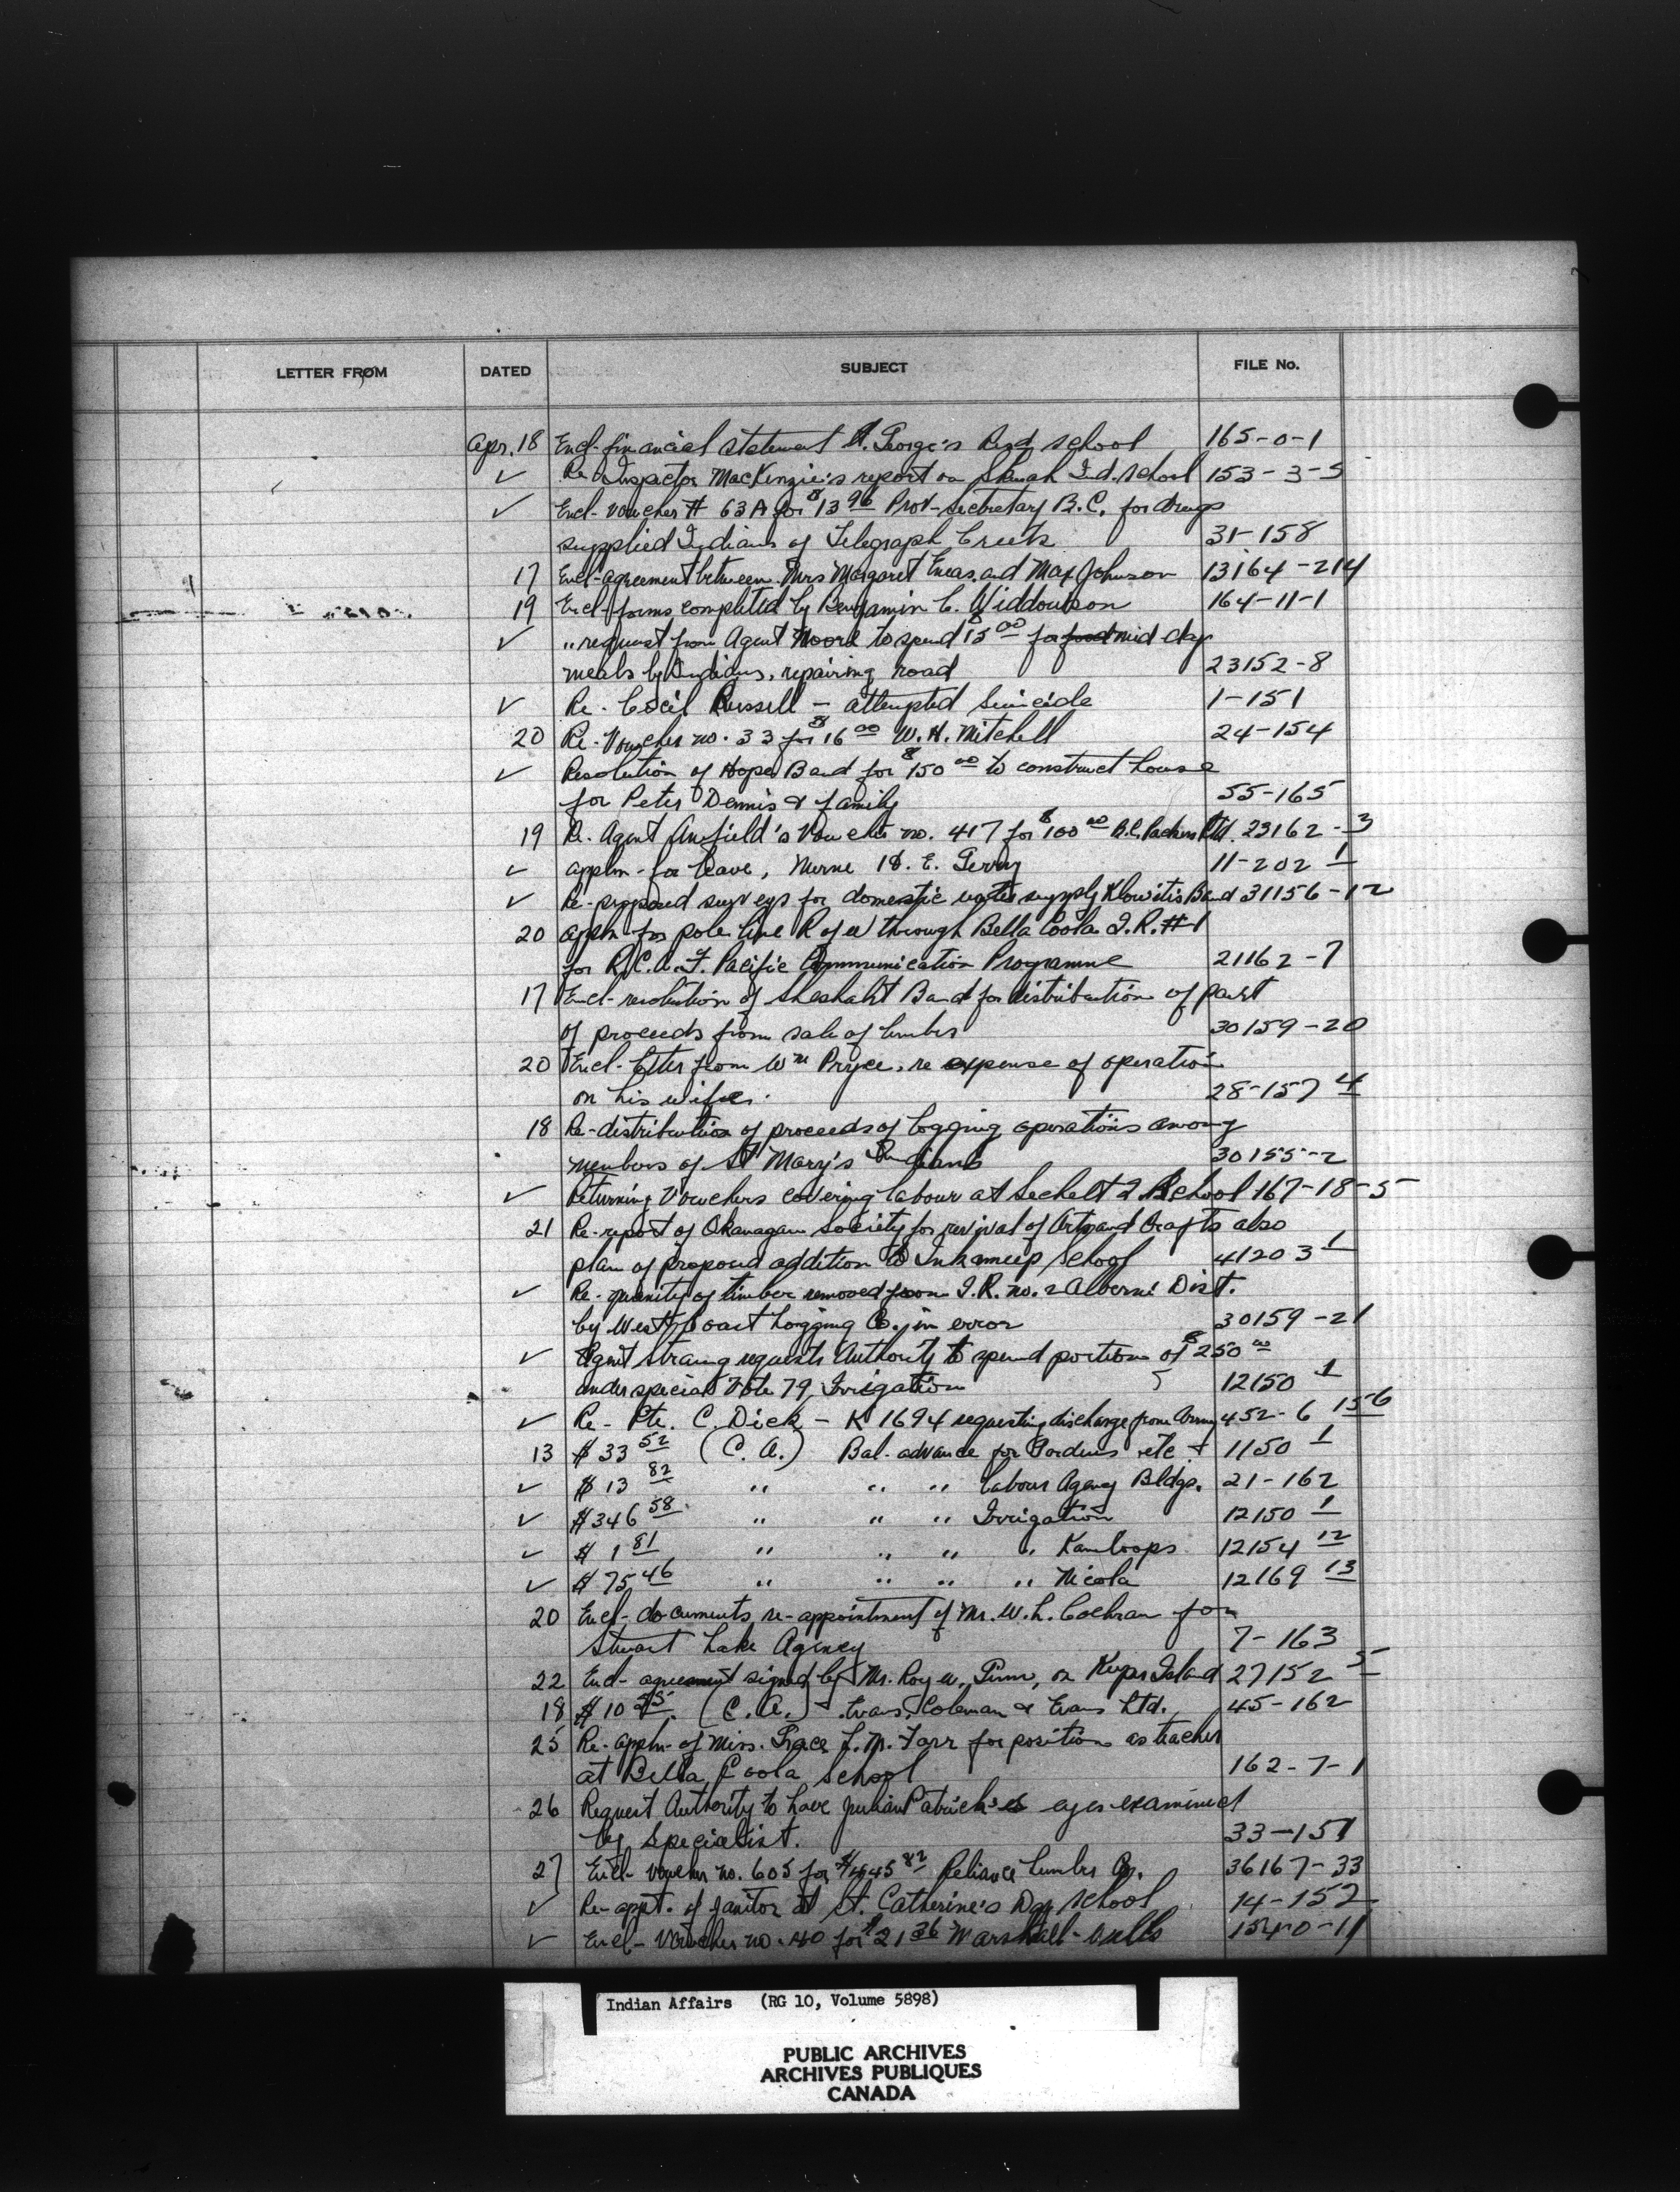 LETTER FROM DATED SUBJECT FILE No.
Apr. 18 Encl- financial statement St. George's Red school 165-0-1
✓ Re Inspector MacKenzie's report on Ind. school 153-3-5
✓ Encl- voucher # 63A for $13 96 Prov-secretary B.C. for drugs
supplied Indians of Telegraph Creek 31-158
17 Encl-agreement between Mrs Margaret Eneas and Max Johnson 13164-214
19 Encl-forms completed by Benjamin C. 164-11-1
✓ " request from Agent Moore to spend $15 00 for food mid-day
meals by Indians, repairing road 23152-8
✓ Re- Cecil Russell - attempted suicide 1-151
20 Re-Voucher no. 33 for $16 00 W. H. Mitchell 24-154
✓ Resolution of Hope Band for $150 00 to construct house
for Peter Dennis & family 55-165
19 Re- Agent Anfield's Voucher no. 417 for $100 00 B.C. Packers Ltd. 23162-3
✓ appln-for leave, Nurse E. 11-202 1
✓ Re-proposed surveys for domestic water supply Klowitis Band 31156-12
20 appln for pole line R of W through Bella Coola I.R.#1
for R.C.A.F. Pacific Communication Programme 21162-7
17 Encl-resolution of Sheshaht Band for distribution of part
of proceeds from sale of timber 30159-20
20 Encl-letter from Wm Pryce, re expense of operation
on his wife. 28-157 4
18 Re-distribution of proceeds of logging operations among
members of St Mary's Indians 30155-2
✓ Returning Vouchers covering labour at Sechelt I. School 167-18-5
21 Re-report of Okanagan Society for revival of Arts and Crafts also
plan of proposed addition to Inkameep School 41203 1
✓ Re-quantity of timber removed from I.R. no. 2 Alberni Dist.
by West Coast Logging Co. in error 30159-21
✓ Agent Strang requests Authority to spend portion of $250 00
under special Vote 79, Irrigation 12150 1
✓ Re- Pte. C. Dick - K1694 requesting discharge from Army 452-6 156
13 $33 52 (C. A.) Bal-advance for etc - 1150 1
✓ $13 82 " " " labour Agency Bldgs. 21-162
✓ $346 58 " " " Irrigation 12150 1
✓ $1 81 " " " " Kamloops 12154 12
✓ $75 46 " " " " Nicola 12169 13
20 Encl-documents re-appointment of Mr. W. L. Cochran for
Stuart Lake Agency 7-163
22 Encl- agreement signed by Mr. Roy W. on Kuper Island 27152 5
18 $10 25 (C. A.) - Evans, Coleman & Evans Ltd. 45-162
25 Re-appln-of Miss. Grace L. M. Farr for position as teacher
at Bella Coola school 162-7-1
26 Request Authority to have Patrick's eyes examined
by specialist. 33-151
27 Encl- voucher no. 605 for 82 Reliance Lumber Co. 36167-33
✓ Re-appt. of janitor at St. Catherine's Day school 14-152
✓ Encl- Voucher no. 40 for $21 36 Marshall-Wells 154-0-11
Indian Affairs (RG 10, Volume 5898)
PUBLIC ARCHIVES
ARCHIVES PUBLIQUES
CANADA